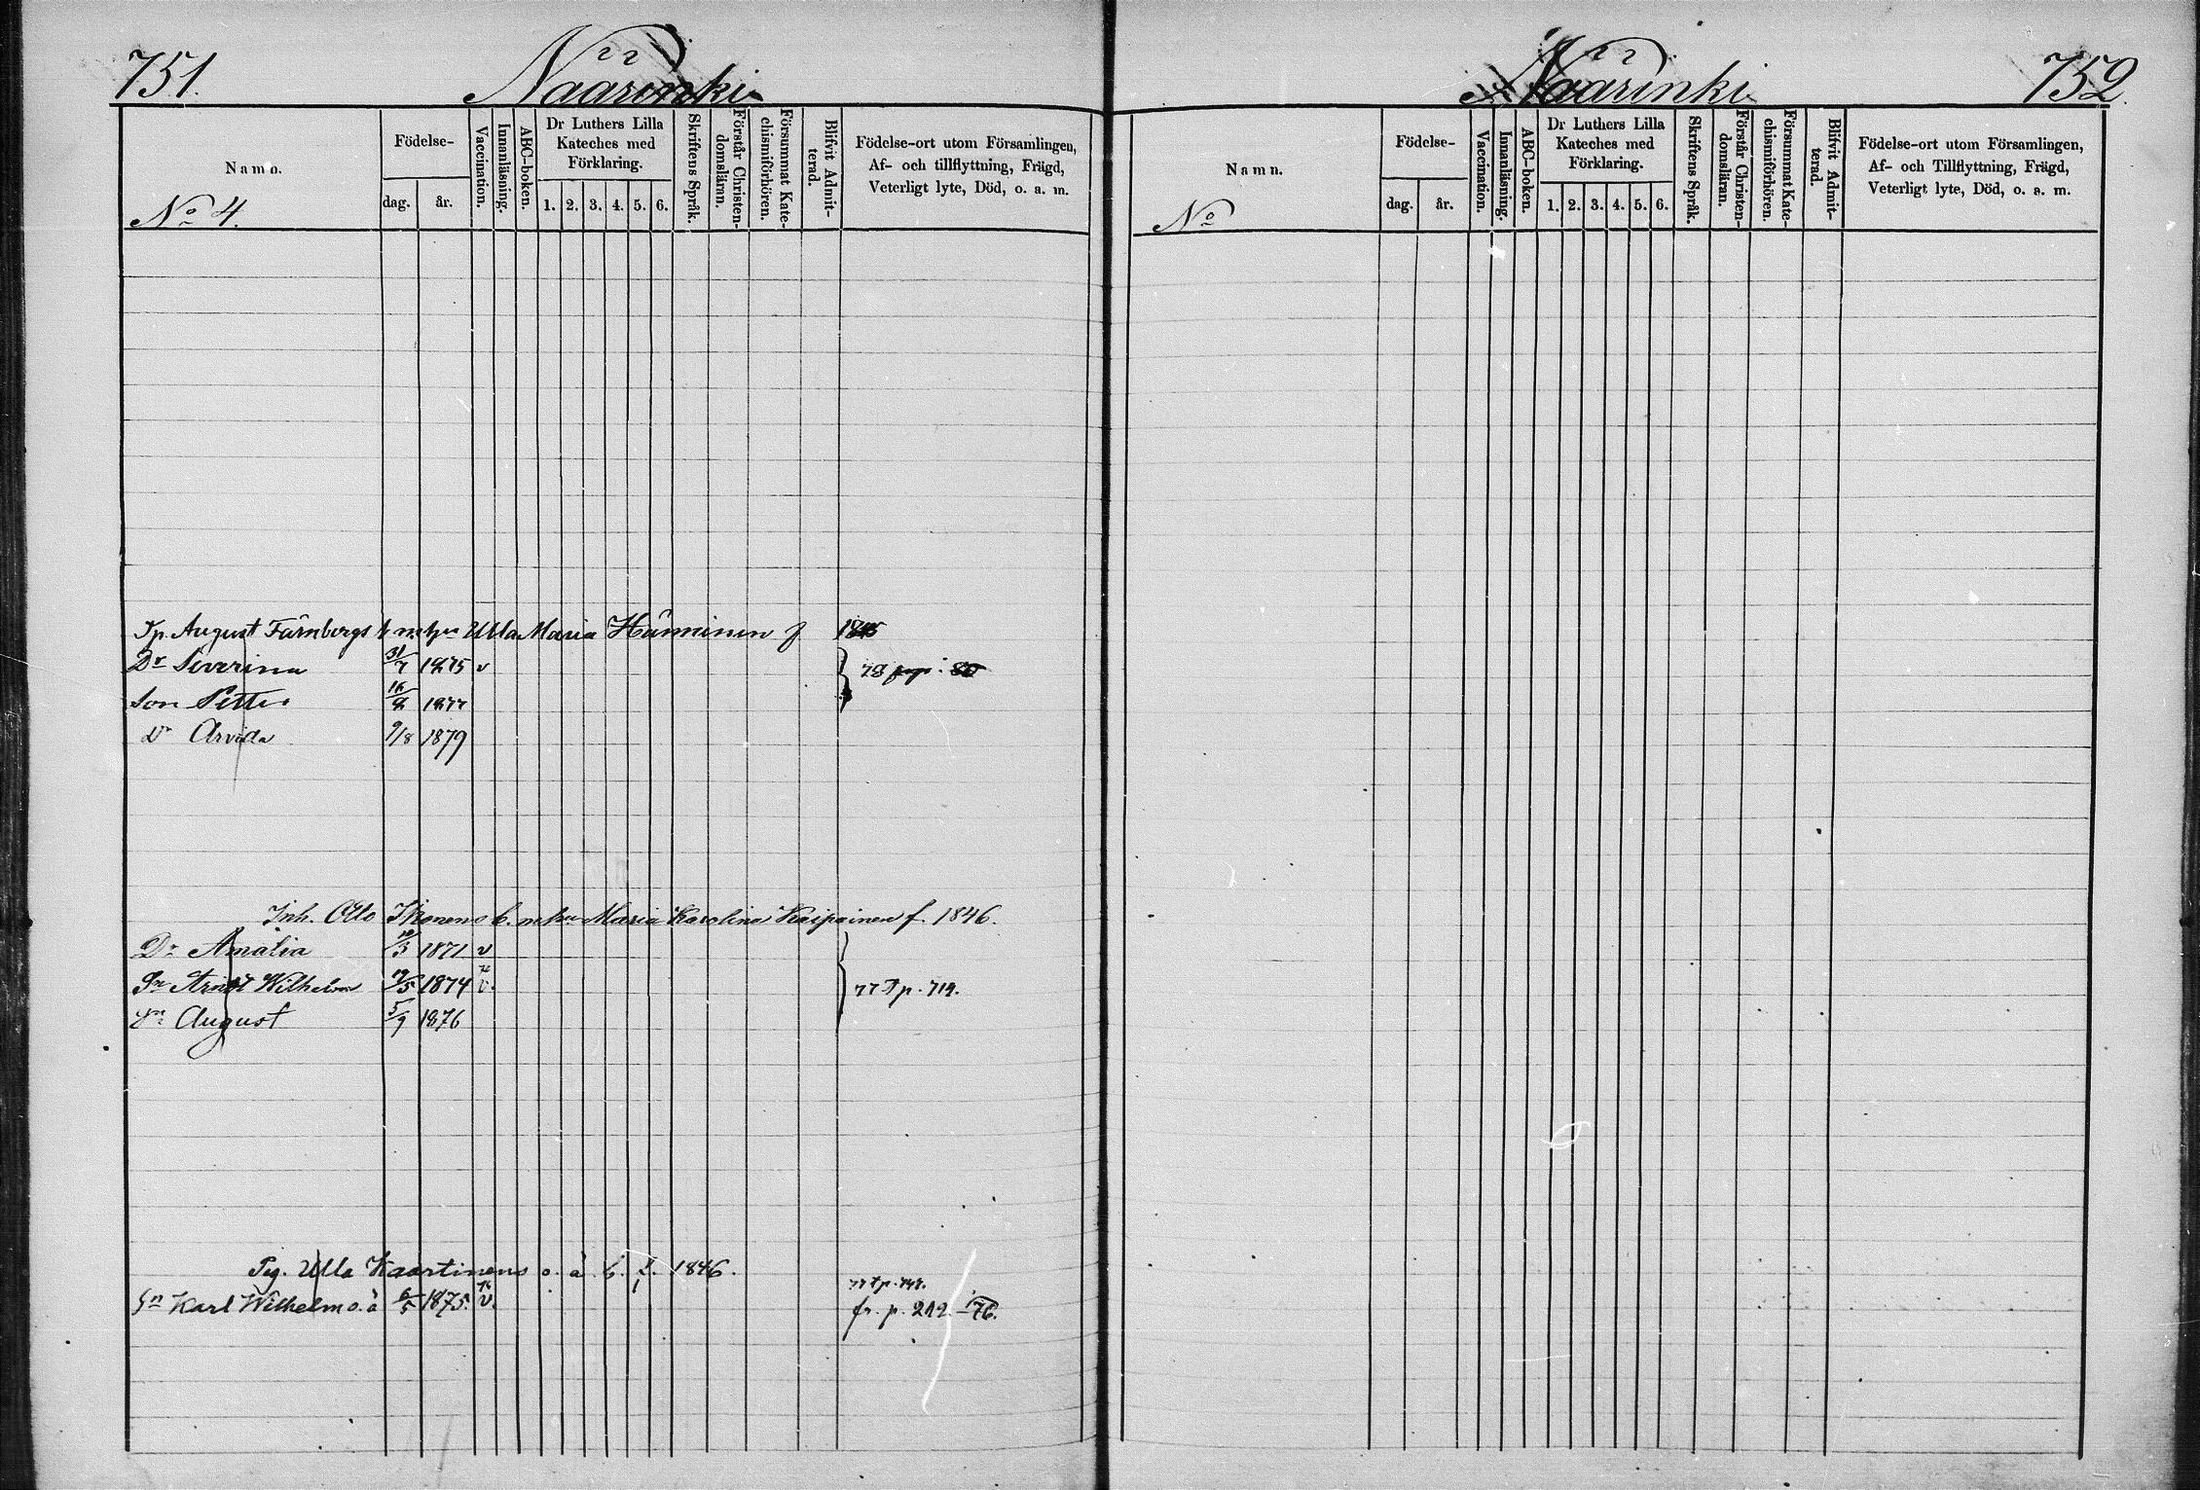 751.
Näärinki
Namn.
No 4.
Födelse-
dag.
år.
Vaccination.
Innanläsning.
ABC-boken.
Dr Luthers Lilla
Kateches med
Förklaring.
1. 2. 3. 4. 5. 6.
Skriftens Språk.
Förstår Christen-
domsläran.
Försummat Kate-
chismiförhören.
Blifvit Admit-
terad.
Födelse-ort utom Församlingen,
Af- och tillflyttning, Frägd,
Veterligt lyte, Död, o. a. m.
August Färnbergs Ulla Maria Hänninen f 1845
Dr Severina 31/7 1875 v
Son Petter 1877
78
Dr Arvida 9/8 1879
Inh. Otto Ikonens b. Maria Karolina Kaipainen f. 1846.
Dr Amalia 1871 v
Wilhelm 19/5 1874 v.
77 p. 719.
Sn August 5/9 1876
Pig. Ulla Kaartinens o. ä. b. f. 1846.
Sn Karl Wilhelm o. ä 6/5 1875. v.
fr. p. 212 76.
Näärinki
752.
Namn.
No
Födelse-
dag.
år.
Vaccination.
Innanläsning.
ABC-boken.
Dr Luthers Lilla
Kateches med
Förklaring.
1. 2. 3. 4. 5. 6.
Skriftens Språk.
Förstår Christen-
domsläran.
Försummat Kate-
chismiförhören.
Blifvit Admit-
terad.
Födelse-ort utom Församlingen,
Af- och Tillflyttning, Frägd,
Veterligt lyte, Död, o. a. m.